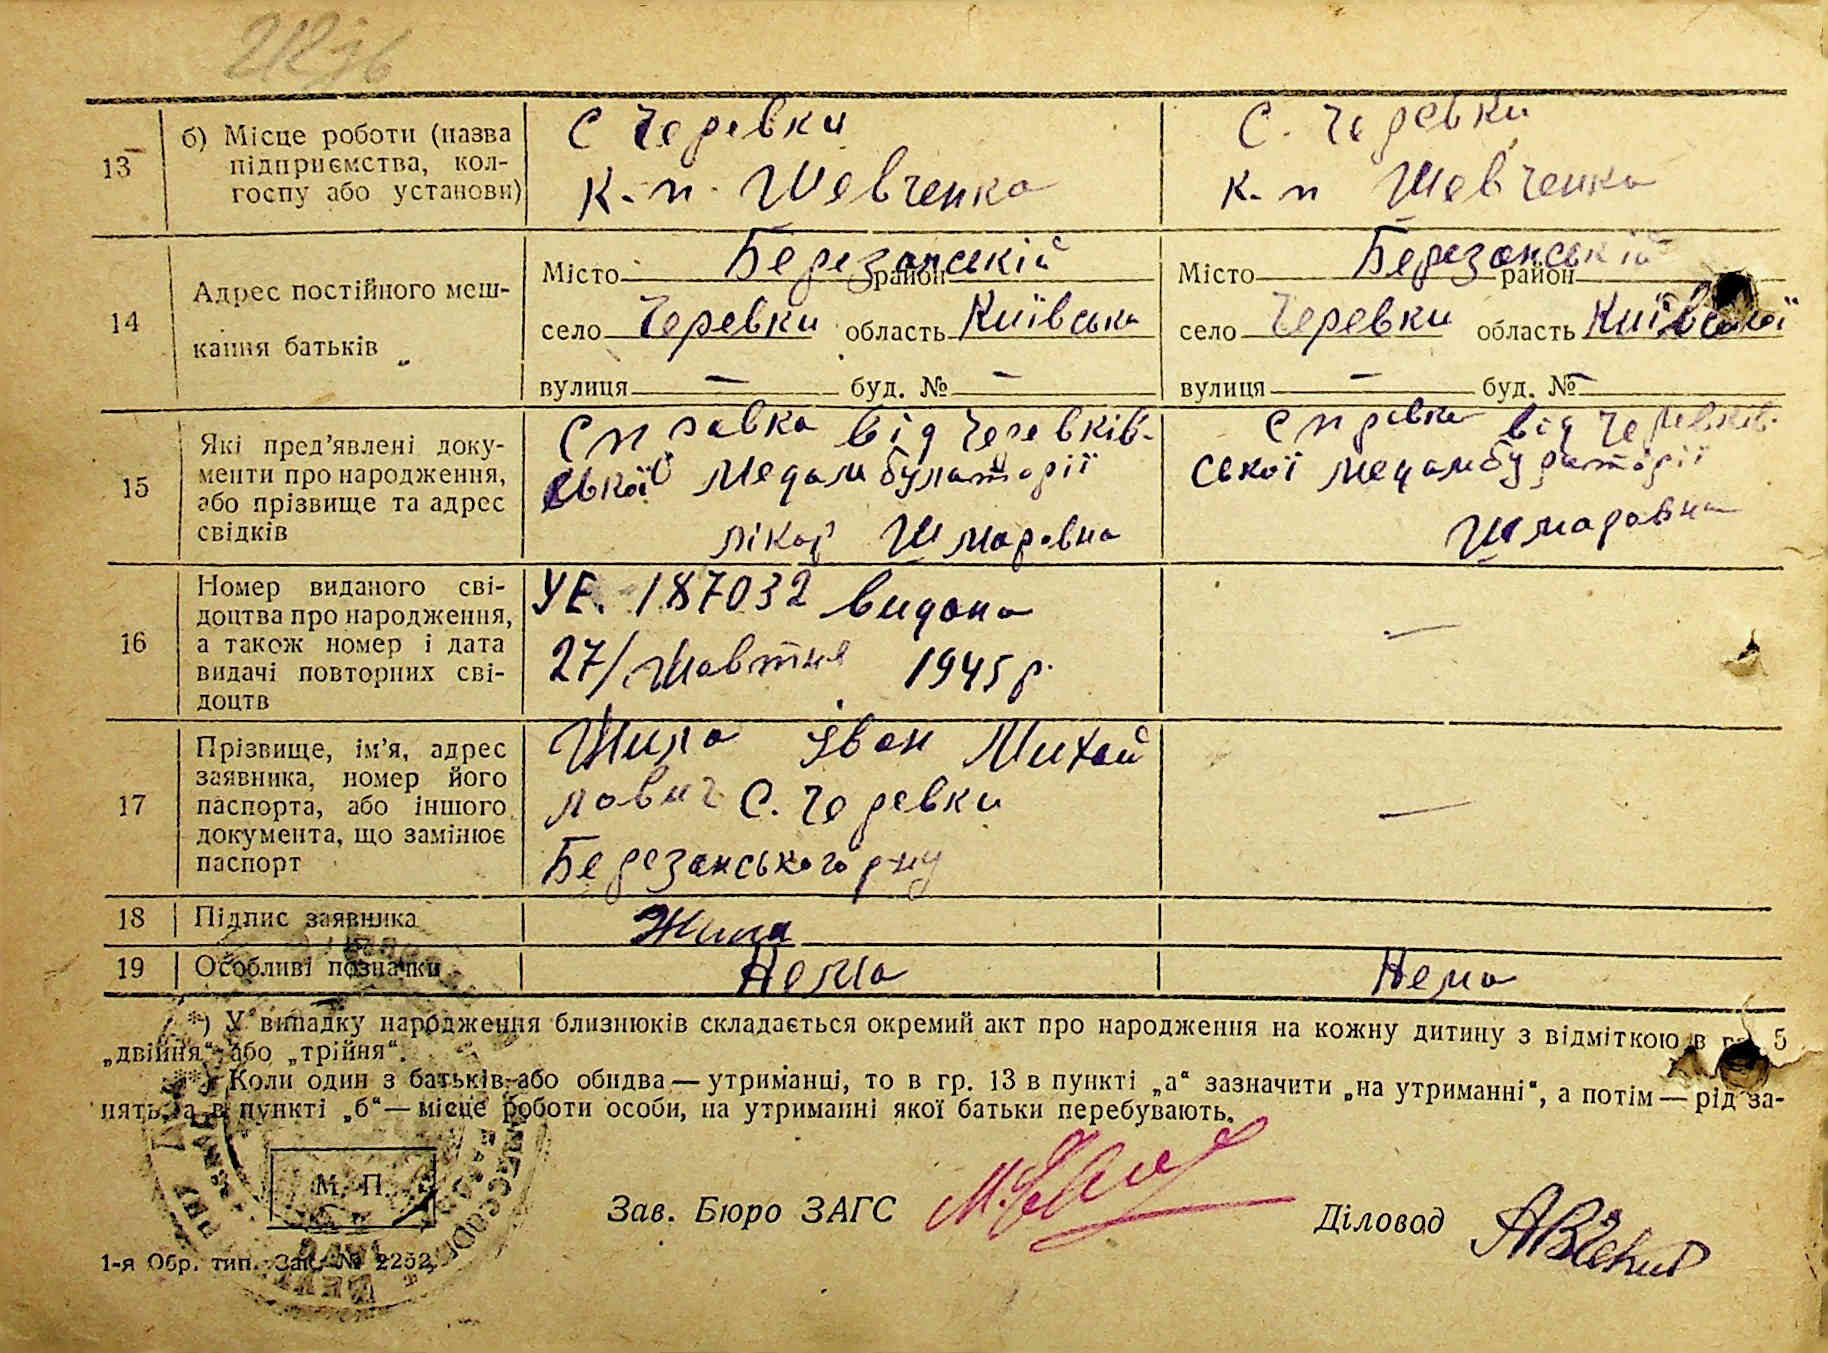 13
б) Місце роботи (назва
підприємства, кол-
госпу або установи)
с Черевки
к-п. Шевченка
С. Черевки
к-п Шевченка
14
Адрес постійного меш-
кання батьків
Місто Березанській район
село Черевки область Київська
вулиця — буд. № —
Місто Березанській район
село Черевки область Київської
вулиця — буд. № —
15
Які пред’явлені доку-
менти про народження,
або прізвище та адрес
свідків
Справка від Черевків-
ської медамбулаторії
лікар Шмаровна
Справка від Черевків-
ської медамбулаторії
Шмаровна
16
Номер виданого сві-
доцтва про народження,
а також номер і дата
видачі повторних сві-
доцтв
УЕ. 187032 видано
27/ Жовтня 1945 р.
—
17
Прізвище, ім’я, адрес
заявника, номер його
паспорта, або іншого
документа, що замінює
паспорт
Жила Іван Михай
лович с. Черевки
Березанського р-ну
—
18
Підпис заявника
Жила
19
Особливі позначки
Нема
Нема
*) У випадку народження близнюків складається окремий акт про народження на кожну дитину з відміткою в гр. 5
„двійня“ або „трійня“.
**) Коли один з батьків або обидва — утриманці, то в гр. 13 в пункті „а“ зазначити „на утриманні“, а потім — рід за-
нять, а в пункті „б“ — місце роботи особи, на утриманні якої батьки перебувають.
М. П.
Зав. Бюро ЗАГС
Діловод
1-я Обр. тип. Зак. № 2252